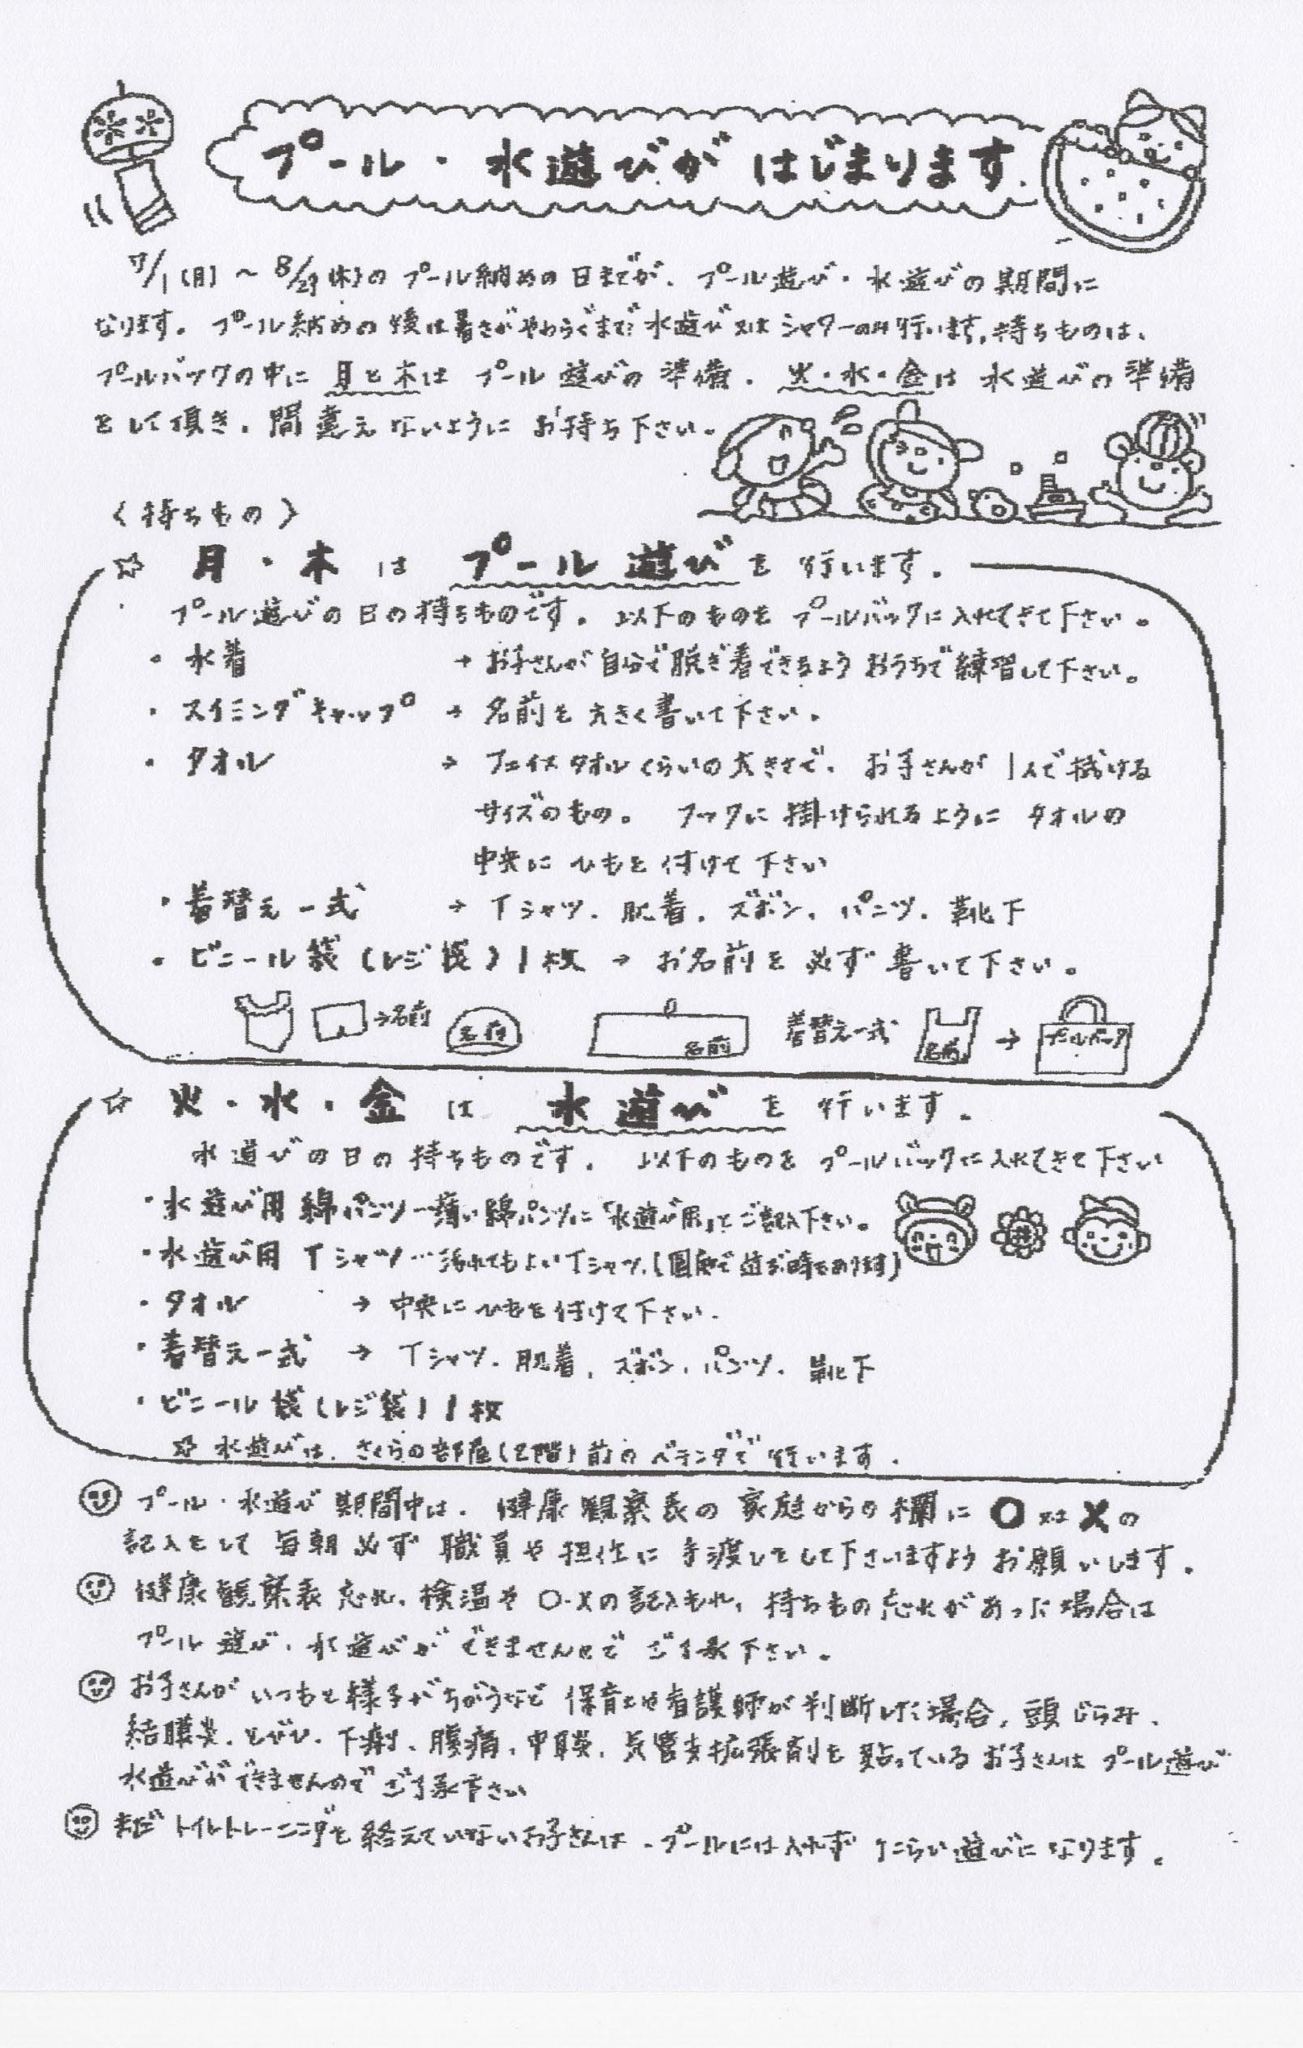 プール・水遊びがはじまります
7/1(月)～8/29(木)のプール納めの日までが、プール遊び・水遊びの期間に
なります。プール納めの後は暑さがやわらぐまで水遊び又はシャワーのみ行います。持ちものは、
プールバックの中に月と木はプール遊びの準備、火・水・金は水遊びの準備
をして頂き、間違えないようにお持ち下さい。
〈持ちもの〉
☆月・木はプール遊びを行います。
プール遊びの日の持ちものです。以下のものをプールバックに入れてきて下さい。
・水着→お子さんが自分で脱ぎ着できるようおうちで練習して下さい。
・スイミングキャップ→名前を大きく書いて下さい。
・タオル→フェイスタオルくらいの大きさで、お子さんが1人で拭ける
サイズのもの。フックに掛けられるようにタオルの
中央にひもを付けて下さい
・着替え一式→Tシャツ、肌着、ズボン、パンツ、靴下
・ビニール袋(レジ袋)1枚→お名前を必ず書いて下さい。
→名前 名前 名前 着替え一式 名前 → プールバック
☆火・水・金は水遊びを行います。
水遊びの日の持ちものです。以下のものをプールバックに入れてきて下さい
・水遊び用綿パンツ…薄い綿パンツに「水遊び用」とご記入下さい。
・水遊び用Tシャツ…汚れてもよいTシャツ、(園庭で遊ぶ時もあります)
・タオル→中央にひもを付けて下さい。
・着替え一式→Tシャツ、肌着、ズボン、パンツ、靴下
・ビニール袋(レジ袋)1枚
☆水遊びは、さくらの部屋(2階)前のベランダで行います。
プール・水遊び期間中は、健康観察表の家庭からの欄に○又は×の
記入をして毎朝必ず職員や担任に手渡しをして下さいますようお願いします。
健康観察表忘れ、検温や○・×の記入もれ、持ちもの忘れがあった場合は
プール遊び、水遊びができませんのでご了承下さい。
お子さんがいつもと様子がちがうなど保育士や看護師が判断した場合、頭じらみ、
結膜炎、とびひ、下痢、腹痛、中耳炎、気管支拡張剤を貼っているお子さんはプール遊び
水遊びができませんのでご了承下さい
まだトイレトレーニングを終えていないお子さんは、プールには入れずたらい遊びになります。